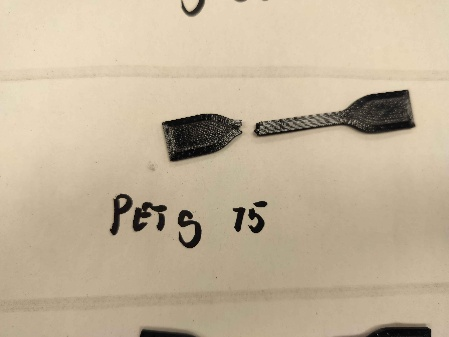 PETG 75